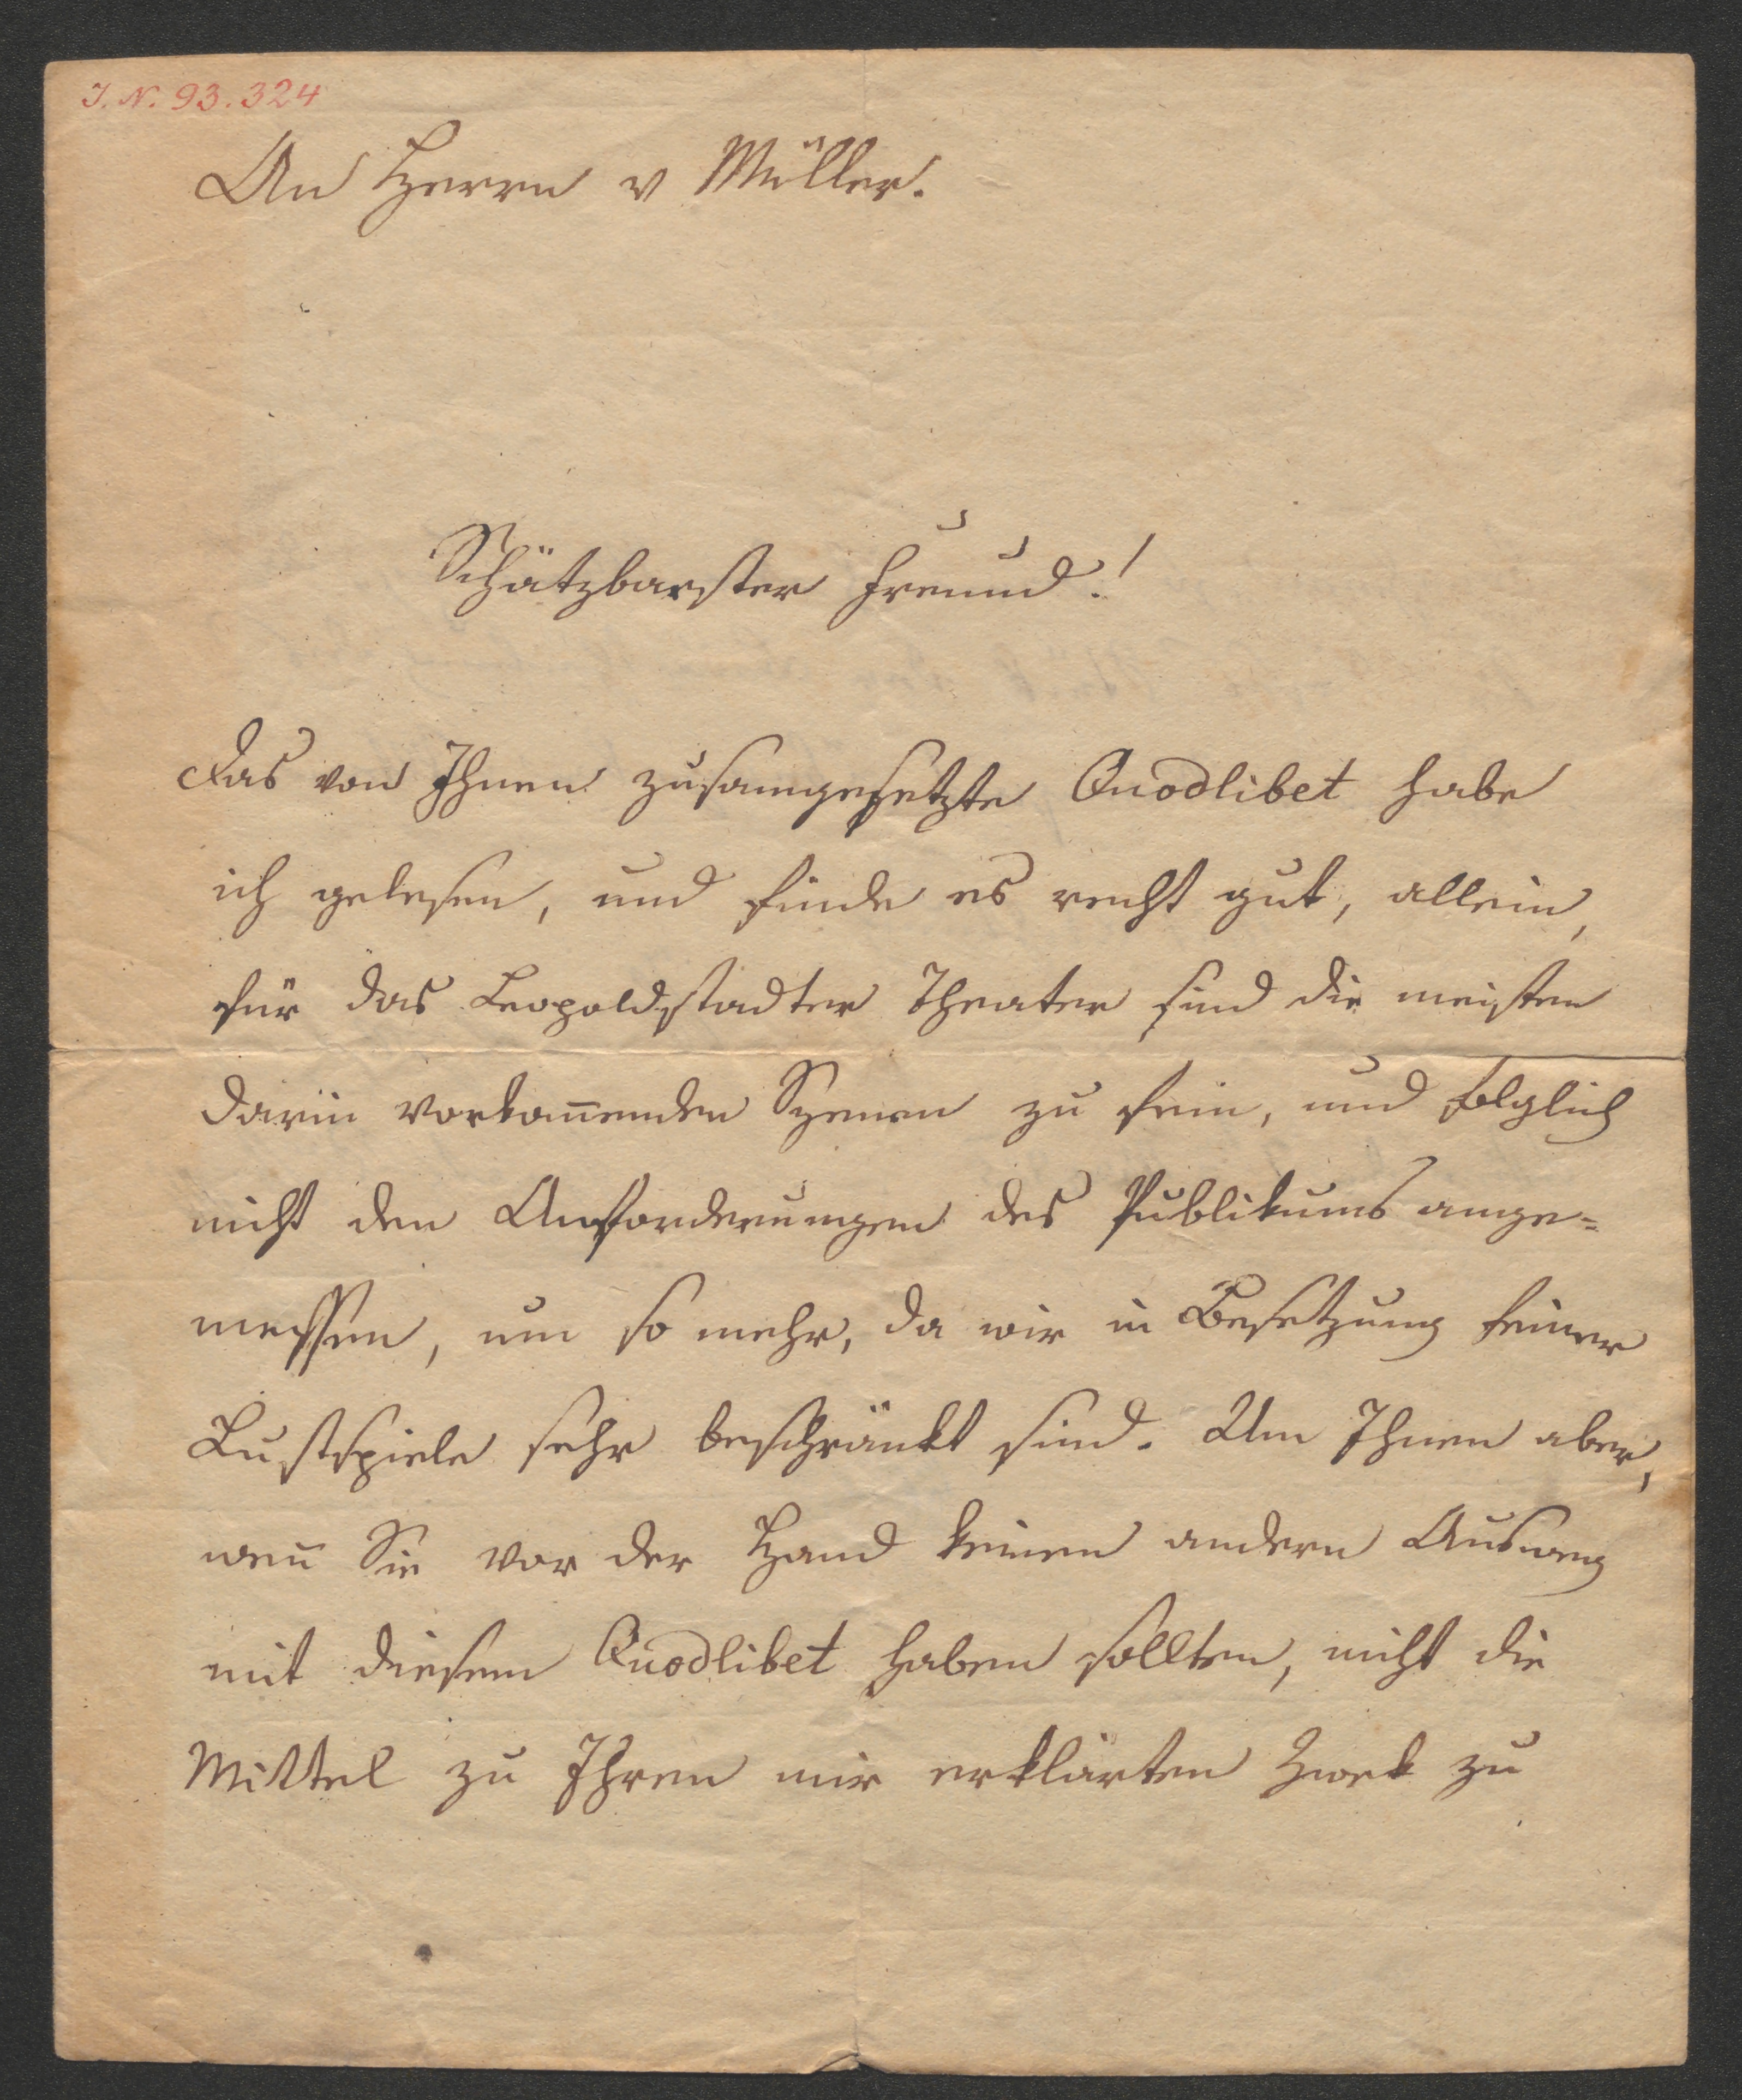 I. N. 93.324
An Herrn v Müller.
Schätzbarster Freund!
Das von Ihnen zusamgesetzte Quodlibet habe
ich gelesen, und finde es recht gut, allein,
für das Leopoldstadter Theater sind die meisten
darin vorkom̅enden Szenen zu fein, und folglich
nicht den Anforderungen des Publikums ange=
messen, um so mehr, da wir in Besetzung feiner
Lustspiele sehr beschränkt sind. Um Ihnen aber,
wen̅ Sie vor der Hand keinen andern Ausweg
mit diesem Quodlibet haben sollten, nicht die
Mittel zu Ihren mir erklärten Zwek zu